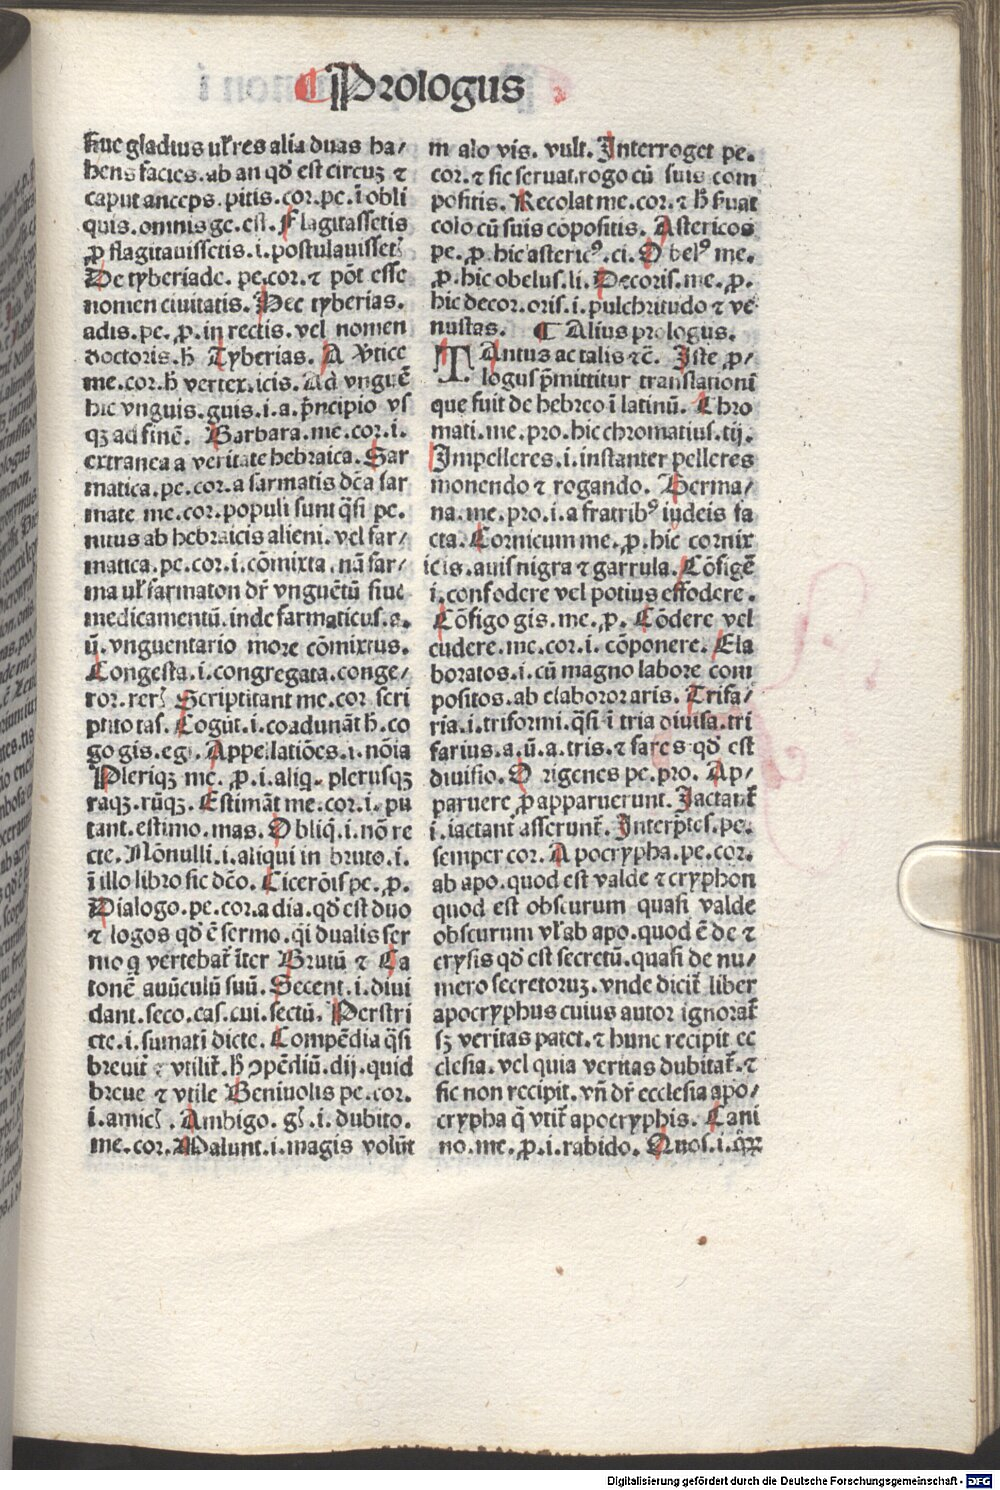 Prologus
siue gladius uł res alia duas ha/
bens facies. ab an qđ est circuʒ ⁊
caput anceps. pitis. cor. pe. ī obli
quis. omnis ge. est. Flagitassetis
ꝓ flagitauissetis. i. postulauissetꝭ
De tyberiade. pe. cor. ⁊ pōt esse
nomen ciuitatis. Hec tyberias.
adis. pe. ꝓ. in rectis. vel nomen
doctoris. ħ Tyberias. A v̓tice
me. cor. ħ vertex. icis. Ad vnguē
hic vnguis. guis. i. a. pͥncipio vs
qʒ ad finē. Barbara. me. cor. i.
extranea a veritate hebraica. Sar
matica. pe. cor. a sarmatis dc̄a sar
mate me. cor. populi sunt q̄si pe.
nitus ab hebraicis alieni. vel far/
matica. pe. cor. i. cōmixta. nā far/
ma uł farmaton dr̄ vnguētū siue
medicamentū. inde farmaticus. a.
ū. vnguentario more cōmixtus.
Congesta. i. congregata. conge/
ror. rerꝭ Scriptitant me. cor scri
ptito tas. Cogūt. i. coadunāt ħ. co
go gis. egi. Appellatiōes. i. nōia
Pleriqʒ me. ꝓ. i. aliq̄. plerusqʒ
raqʒ. rūqʒ. Estimāt me. cor. i. pu
tant. estimo. mas. Obliq̄. i. nō re
cte. Nōnulli. i. aliqui in bruto. i.
ī illo libro sic dc̄o. Cicerōis pe. ꝓ.
Dialogo. pe. cor. a dia. qđ est duo
⁊ logos qđ ē sermo. q̄i dualis ser
mo q vertebat̄ īter Brutū ⁊ Ca
tonē auūculū suū. Secent. i. diui
dant. seco. cas. cui. sectū. Perstri
cte. i. sumatī dicte. Compēdia q̄si
breuit̄ ⁊ vtilit̄. ħ ↄpēdiū. dij. quid
breue ⁊ vtile Beniuolis pe. cor.
i. amicꝭ. Ambigo. gꝭ. i. dubito.
me. cor. Malunt. i. magis volūt
m alo vis. vult. Interroget pe.
cor. ⁊ sic seruat. rogo cū suis com
positis. Recolat me. cor. ⁊ ħ s̓uat
colo cū suis cōpositis. Astericos
pe. ꝓ. hic astericꝰ. ci. Obelꝰ me.
ꝓ. hic obelus. li. Decoris. me. ꝓ.
hic decor. oris. i. pulchritudo ⁊ ve
nustas. ¶ Alius prologus.
TAntus ac talis ⁊c̄. Iste ꝓ/
logus p̄mittitur translationi
que fuit de hebreo ī latinū. Chro
mati. me. pro. hic chromatius. tij.
Impelleres. i. instanter pelleres
monendo ⁊ rogando. Germa/
na. me. pro. i. a fratribꝰ iudeis fa
cta. Cornicum me. ꝓ. hic cornix
icis. auis nigra ⁊ garrula. Cōfigē
i. confodere vel potius effodere.
Cōfigo gis. me. ꝓ. Cōdere vel
cudere. me. cor. i. cōponere. Ela
boratos. i. cū magno labore com
positos. ab elaboror aris. Trifa/
ria. i. triformi. q̄si ī tria diuisa. tri
farius. a. ū. a. tris. ⁊ fares qđ est
diuisio. Origenes pe. pro. Ap/
paruere ꝓ apparuerunt. Iactant̄
i. iactant̄ asserunt̄. Interp̄tes. pe.
semper cor. Apocrypha. pe. cor.
ab apo. quod est valde ⁊ cryphon
quod est obscurum quasi valde
obscurum vł ab apo. quod ē de ⁊
crysis qđ est secretū. quasi de nu/
mero secretoruʒ. vnde dicit̄ liber
apocryphus cuius autor ignorat̄
sʒ veritas patet. ⁊ hunc recipit ec
clesia. vel quia veritas dubitat̄. ⁊
sic non recipit. vn̄ dr̄ ecclesia apo/
crypha q̄ vtit̄ apocryphis. Cani
no. me. ꝓ. i. rabido. Quos. i. q̄ꝝ
Digitalisierung gefördert durch die Deutsche Forschungsgemeinschaft - DFG